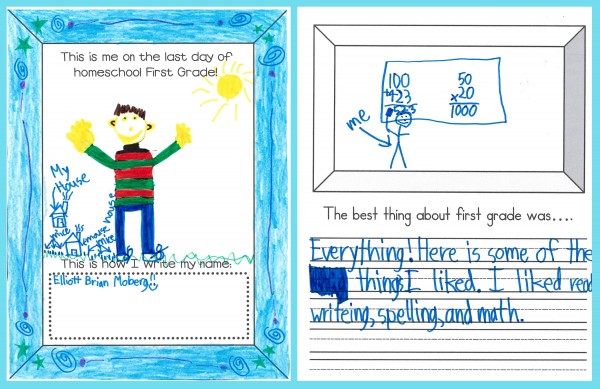 This is me on the last day of
homeschool First Grade!
My
House
mice
mouse house
mice
This is how I write my name:
Elliott Brian Moberg
100
+423
523
50
x20
1000
me
The best thing about first grade was....
Everything! Here is some of the
things I liked. I liked read
writeing, spelling, and math.